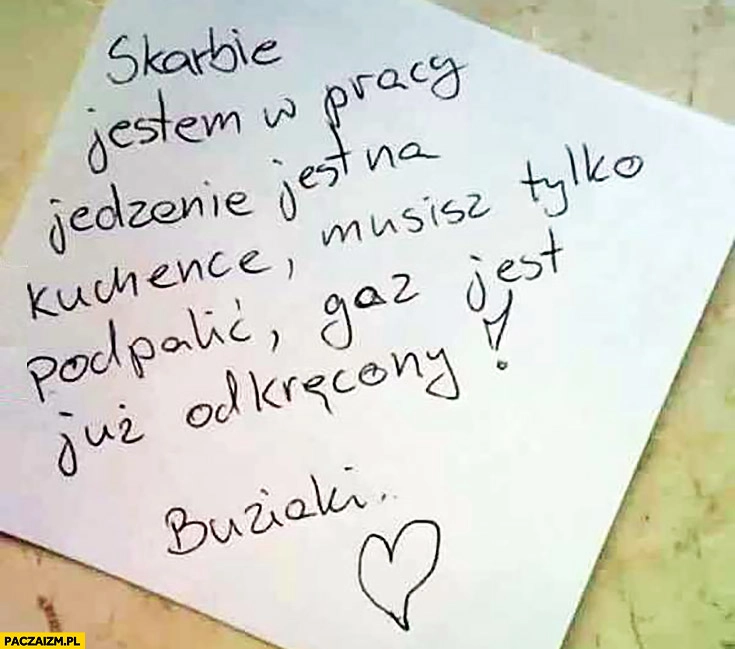 Skarbie
jestem w pracy
jedzenie jest na
kuchence, musisz tylko
podpalić, gaz jest
już odkręcony!
Buziaki..
PACZAIZM.PL